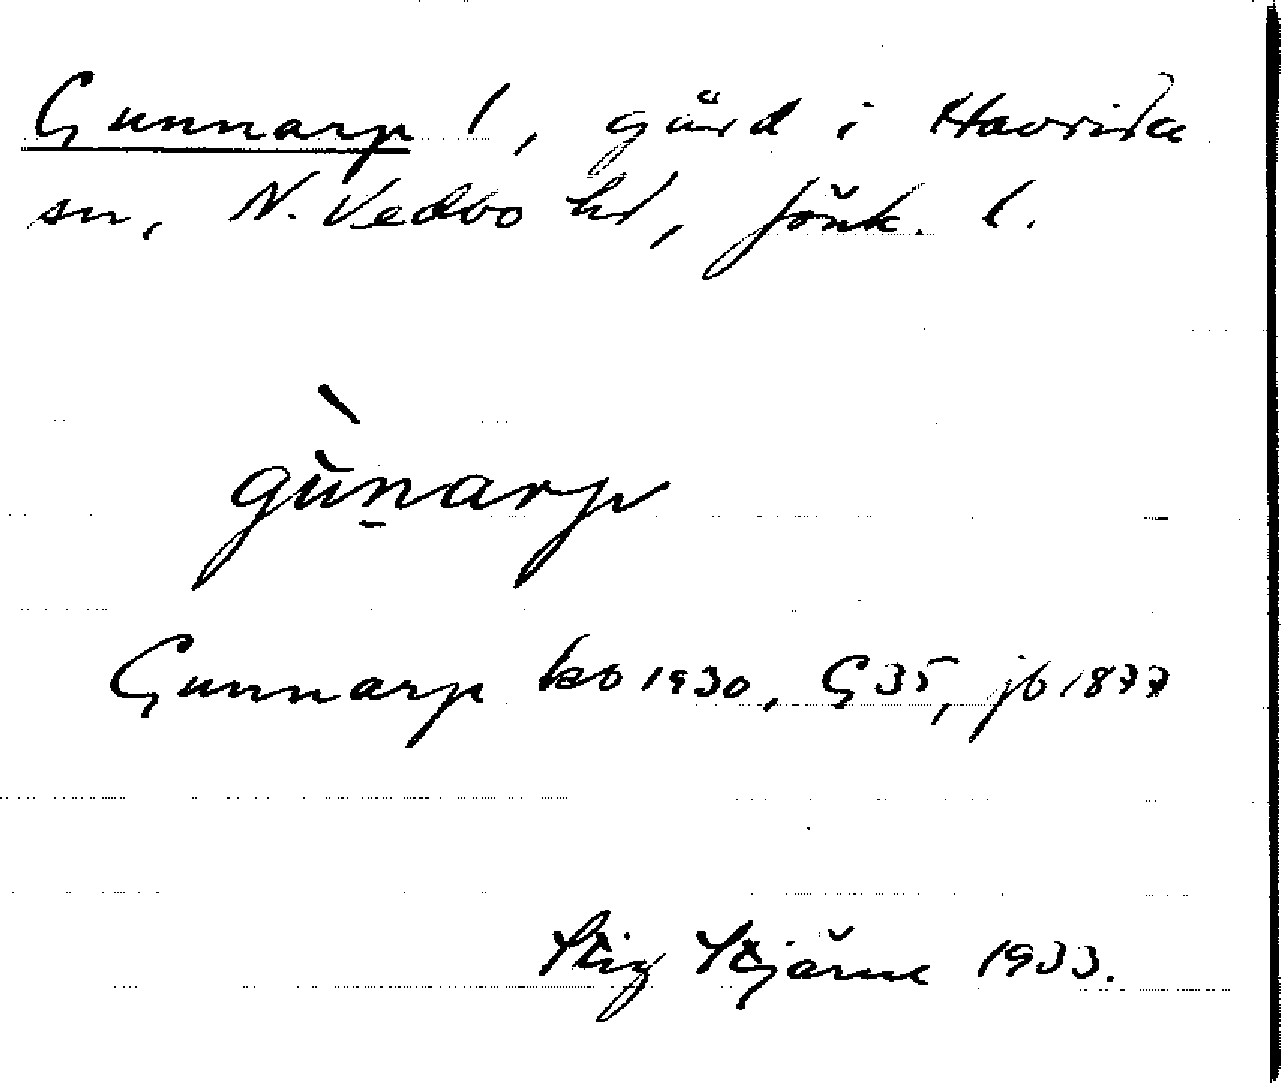 Gunnarp 1, gård i Haurida
sn, N. Vedbo hd, Jönk. l.
gùnarp
Gunnarp kb 1930, G 35, jb 1877
Stig Stjärne 1933.